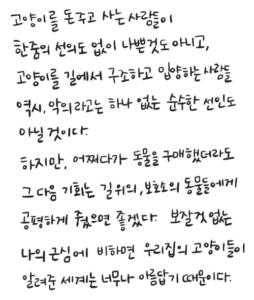 고양이를 돈주고 사는 사람들이
한줌의 선의도 없이 나쁠것도 아니고,
고양이를 길에서 구조하고 입양하는 사람들
역시, 악의라고는 하나 없는 순수한 선인도
아닐 것이다.
하지만, 어쩌다가 동물을 구매했더라도
그 다음 기회는 길 위의, 보호소의 동물들에게
공평하게 줬으면 좋겠다. 보잘것 없는
나의 근심에 비하면 우리집의 고양이들이
알려준 세계는 너무나 아름답기 때문이다.